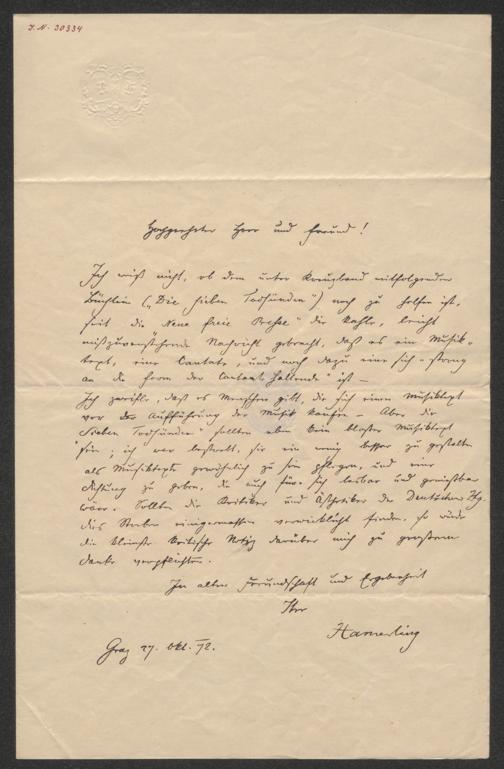 J. N. 30334
Hochgeehrter Herr und Freund!
Ich weiß nicht, ob dem unter Kreuzband mitfolgenden
Büchlein („Die sieben Todsünden“) noch zu helfen ist,
seit die „Neue freie Presse“ die kahle, leicht
mißzuverstehende Nachricht gebracht, daß es ein Musik-
text, eine Cantate, und noch dazu eine sich „streng
an die Form der Cantate haltende“ ist –
Ich zweifle, daß es Menschen gibt, die sich einen Musiktext
vor der Aufführung der Musik kaufen – Aber die
„Sieben Todsünden“ sollten eben kein bloßer Musiktext
sein; ich war bestrebt, sie ein wenig besser zu gestalten
als Musiktexte gewöhnlich zu sein pflegen, und eine
Dichtung zu geben, die auch für sich lesbar und genießbar
wäre. Sollten die Kritiker und Ästhetiker der Deutschen Ztg.
dies Streben einigermassen verwirklicht finden, so würde
die kleinste kritische Notiz darüber mich zu grossem
Danke verpflichten.
In alter Freundschaft und Ergebenheit
Ihr
Hamerling
Graz 27. Okt. 72.